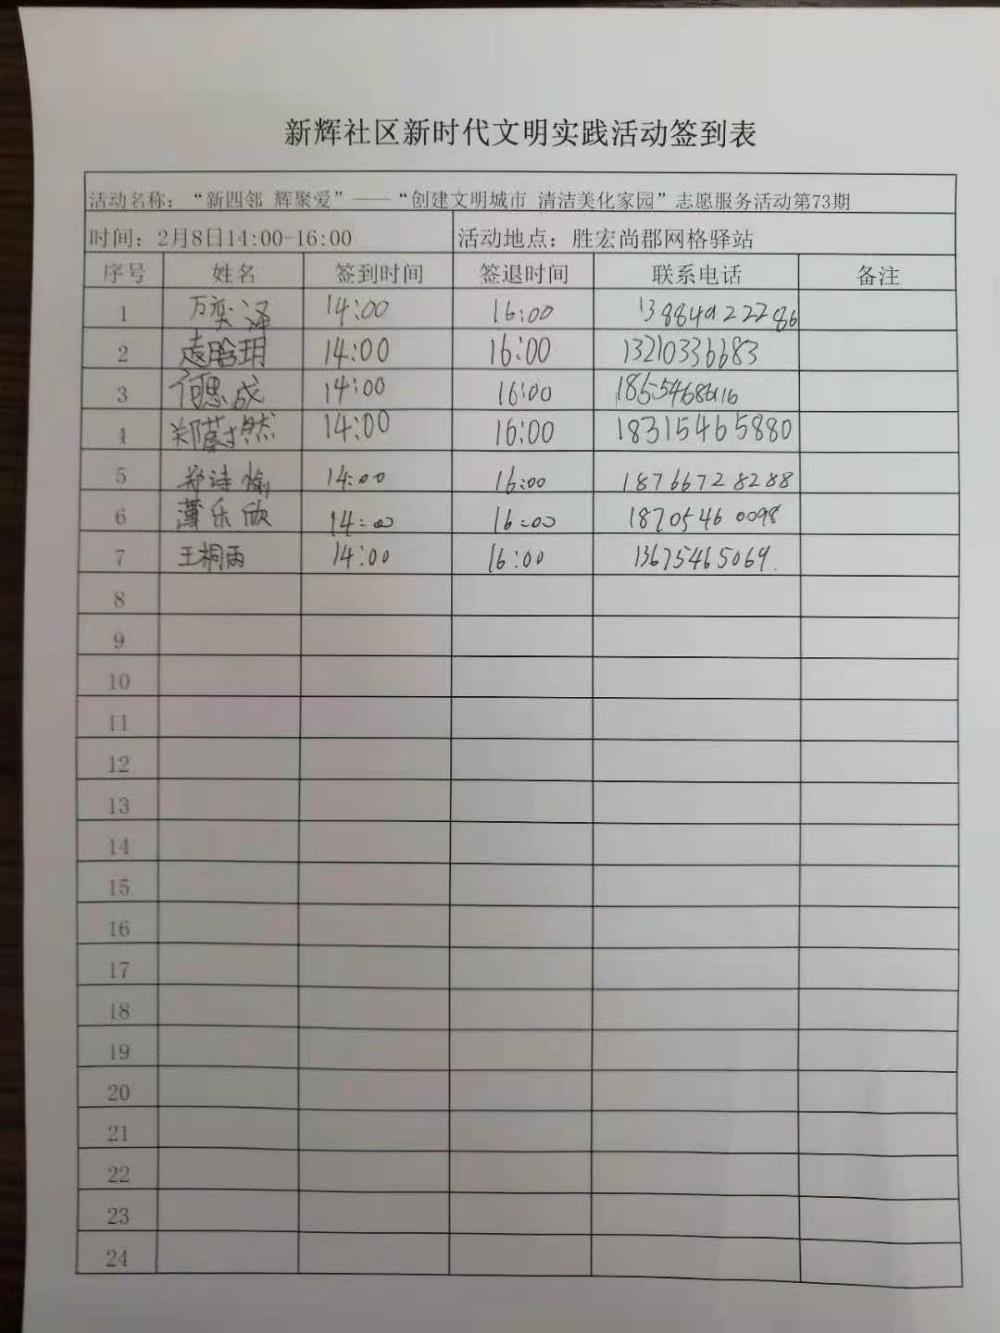 新辉社区新时代文明实践活动签到表
活动名称：“新四邻 辉聚爱”——“创建文明城市 清洁美化家园”志愿服务活动第73期
时间：2月8日14:00-16:00 活动地点：胜宏尚郡网格驿站
序号 姓名 签到时间 签退时间 联系电话 备注
1 万奕泽 14:00 16:00 13884922286
2 14:00 16:00 13210336683
3 何思成 14:00 16:00
4 14:00 16:00 18315465880
5 郑诗愉 14:00 16:00 18766728288
6 薄乐欣 14:00 16:00 18705460098
7 王桐雨 14:00 16:00 13675465069.
8
9
10
11
12
13
14
15
16
17
18
19
20
21
22
23
24